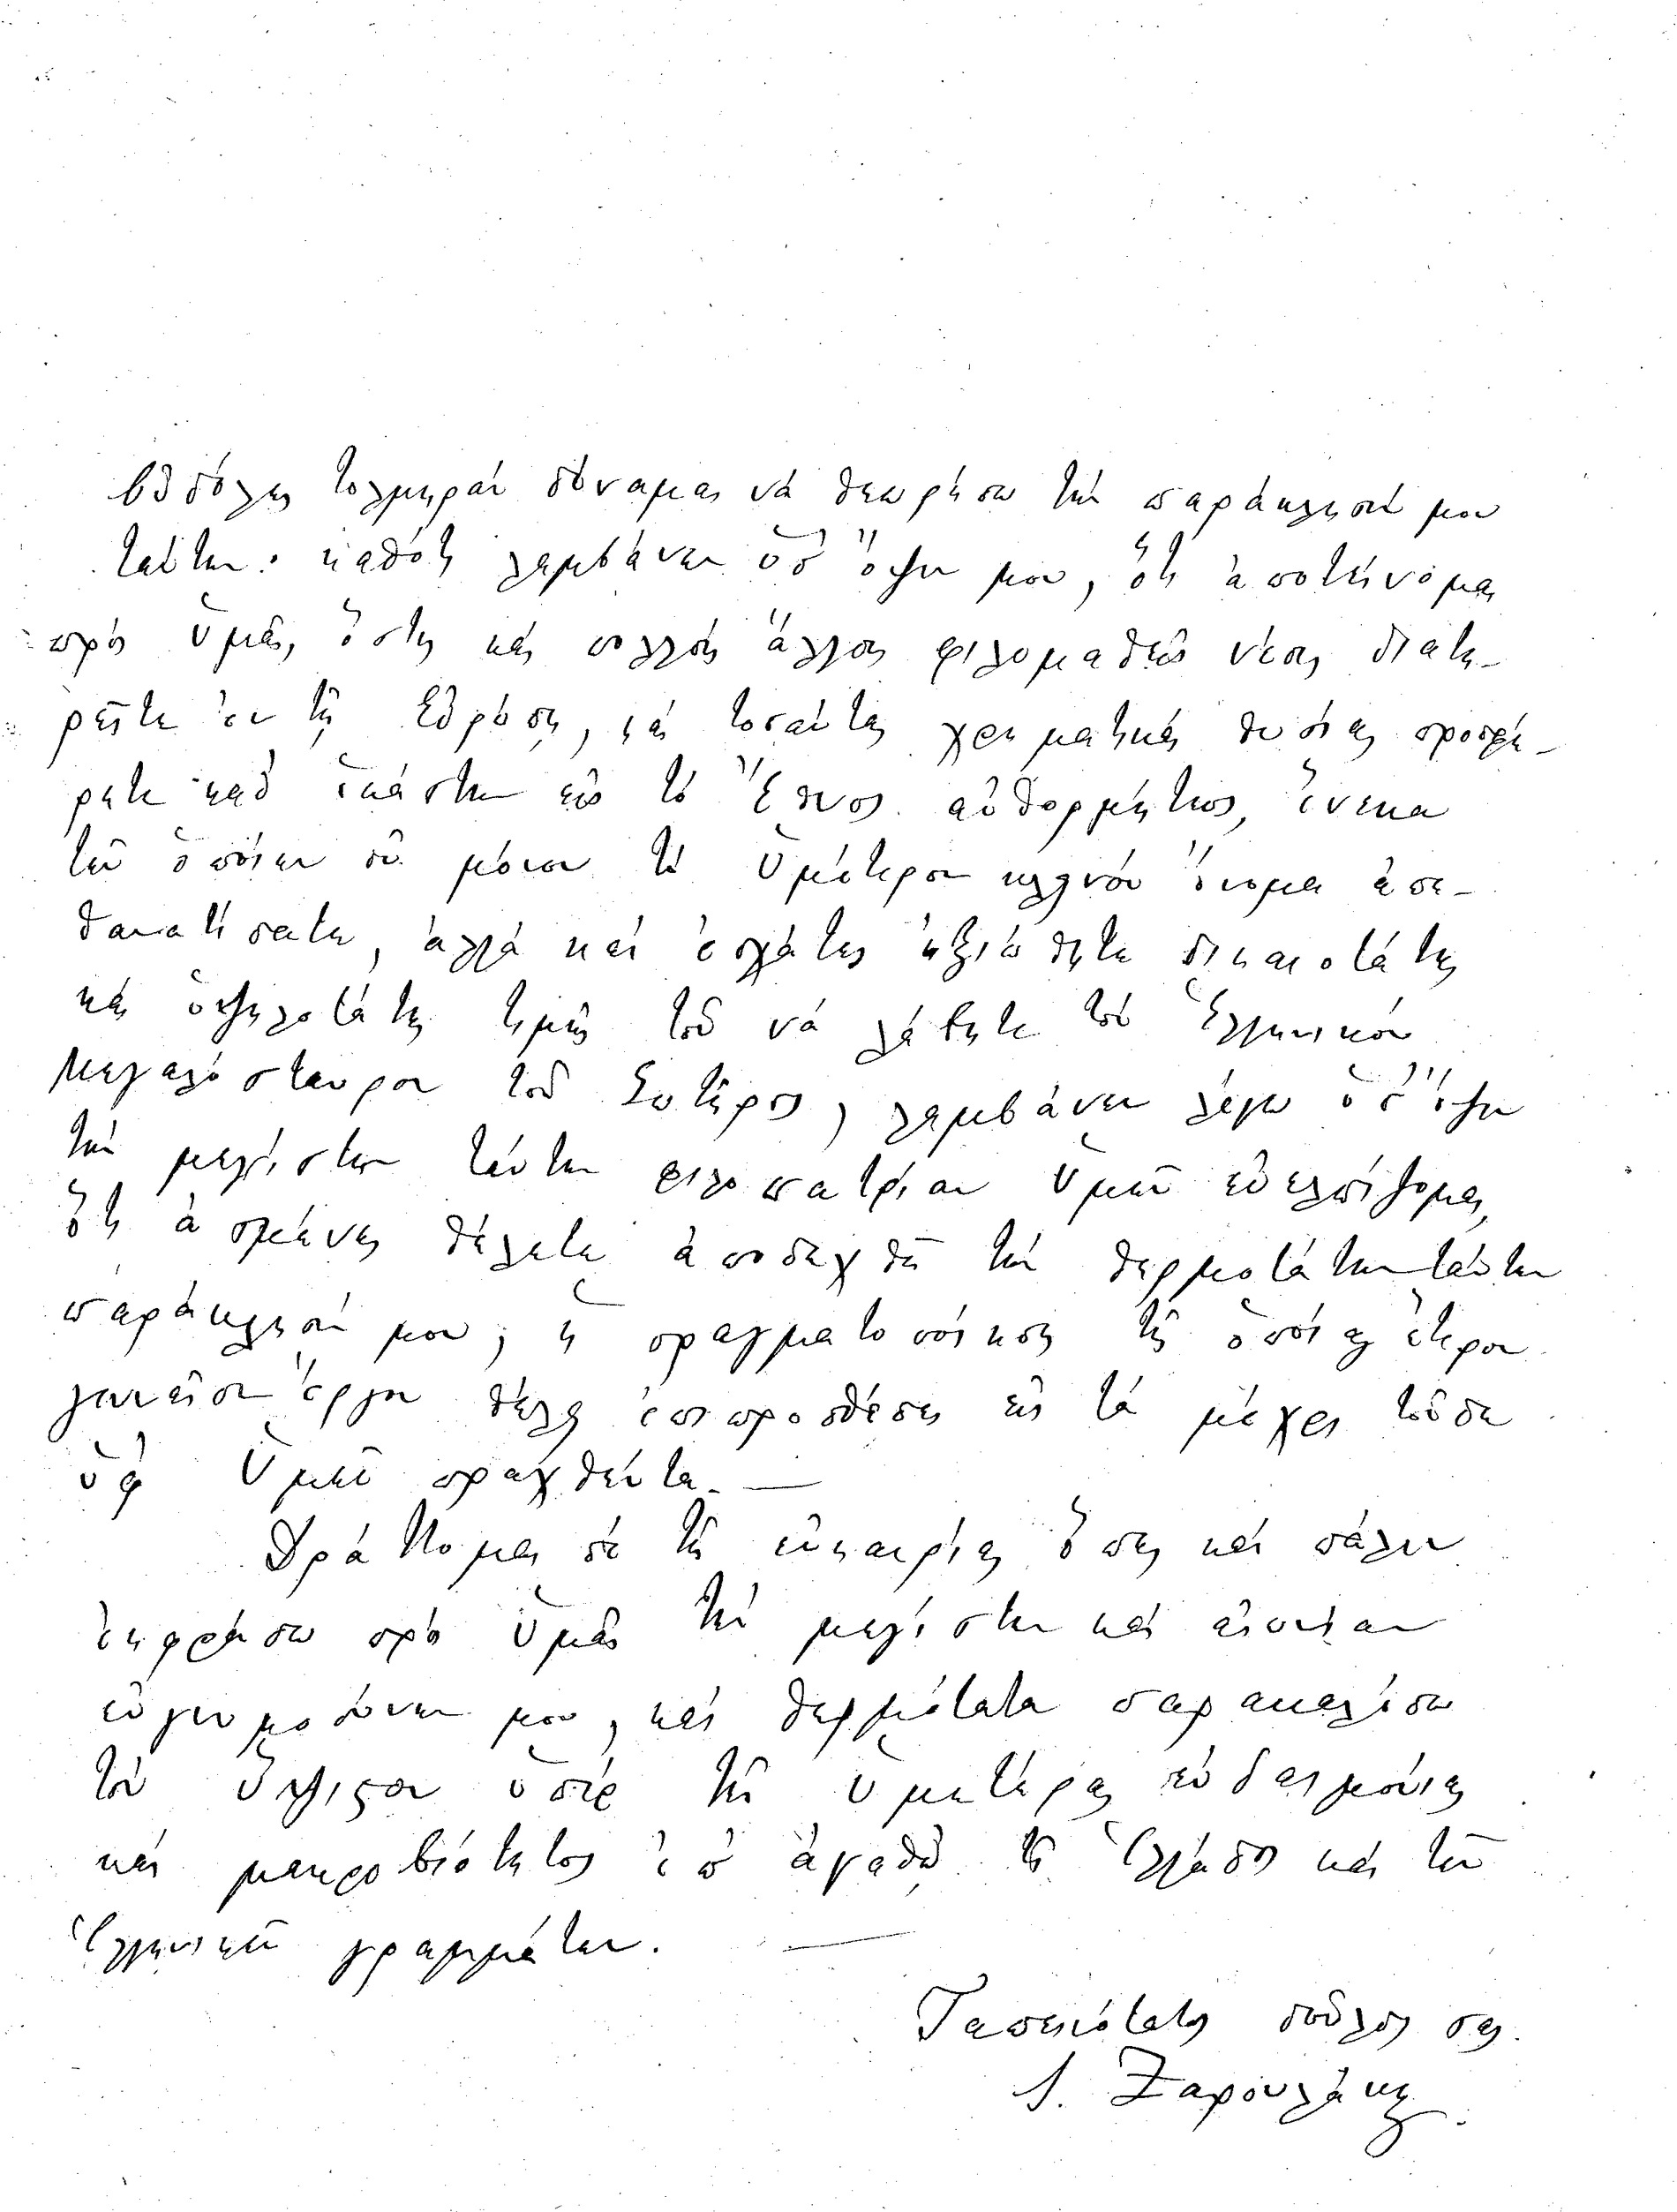 οὐδόλως τολμηρὰν δύναμαι νὰ θεωρήσω τὴν παράκλησίν μου
ταύτην· καθότι λαμβάνων ὑπ' ὄψιν μου, ὅτι ἀποτείνομαι
πρὸς Ὑμᾶς, ὅστις καὶ πολλοὺς ἄλλους φιλομαθεῖς νέους διατη-
ρεῖτε ἐν τῇ Εὐρώπῃ, καὶ τοσαύτας χρηματικὰς θυσίας προσφέ-
ρετε καθ' ἑκάστην εἰς τὸ Ἔθνος αὐθορμήτως, ἕνεκα
τῶν ὁποίων οὐ μόνον τὸ Ὑμέτερον κλεινὸν ὄνομα ἀπε-
θανατίσατε, ἀλλὰ καὶ ἐσχάτως ἠξιώθητε δικαιοτάτης
καὶ ὑψηλοτάτης τιμῆς τοῦ νὰ λάβητε τὸν Ἑλληνικὸν
Μεγαλόσταυρον τοῦ Σωτῆρος, λαμβάνων λέγω ὑπ' ὄψιν
τὴν μεγίστην ταύτην φιλοπατρίαν Ὑμῶν εὐελπίζομαι,
ὅτι ἀσμένως θέλετε ἀποδεχθῆ τὴν θερμοτάτην ταύτην
παράκλησίν μου, ἡ πραγματοποίησις τῆς ὁποίας ἕτερον
γενναῖον ἔργον θέλει ἐπιπροσθέσει εἰς τὰ μέχρι τοῦδε
ὑφ' Ὑμῶν πραχθέντα. —
Δράττομαι δὲ τῆς εὐκαιρίας ὅπως καὶ πάλιν
ἐκφράσω πρὸς Ὑμᾶς τὴν μεγίστην καὶ αἰωνίαν
εὐγνωμοσύνην μου, καὶ θερμότατα παρακαλέσω
τὸν Ὕψιστον ὑπὲρ τῆς Ὑμετέρας εὐδαιμονίας
καὶ μακροβιότητος ἐπ' ἀγαθῷ τῆς Ἑλλάδος καὶ τῶν
Ἑλληνικῶν γραμμάτων. —
Ταπεινότατος δοῦλος σας
Ι. Ζαρουλάκης